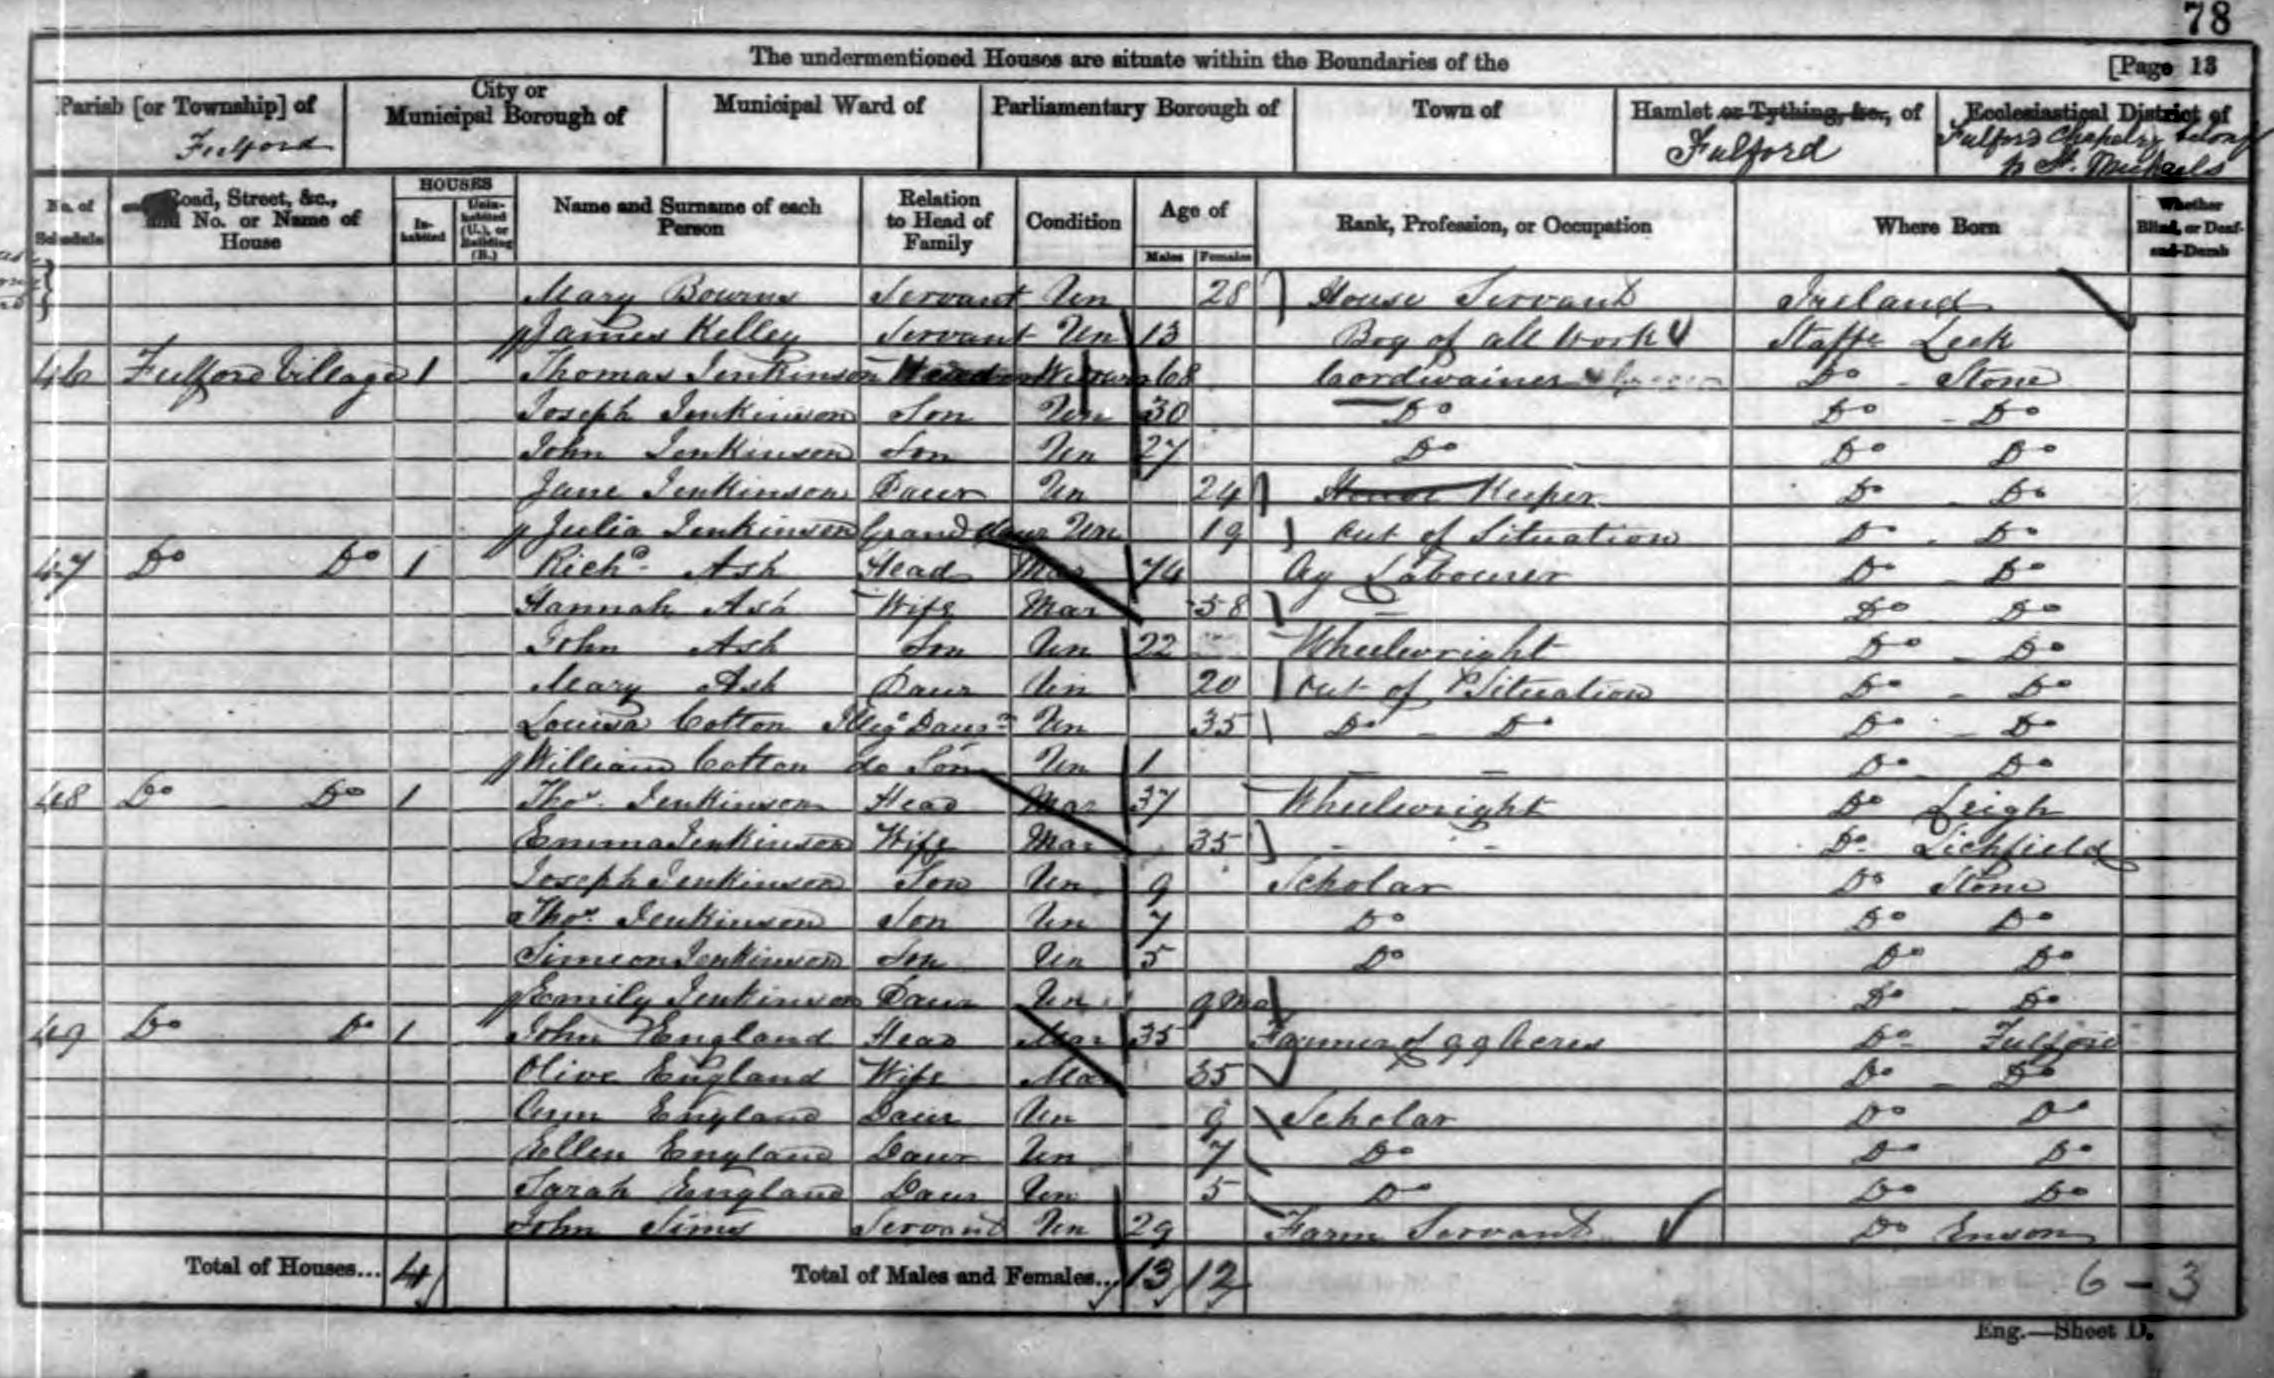 78
The undermentioned Houses are situate within the Boundaries of the [Page 13
Parish [or Township] of Fulford
City or Municipal Borough of
Municipal Ward of
Parliamentary Borough of
Town of
Hamlet or Tything, &c., of Fulford
Ecclesiastical District of Fulford Chapelry belong to St. Michaels
No. of Schedule
Road, Street, &c., and No. or Name of House
HOUSES
In-habited
Unin-habited (U.), or Building (B.)
Name and Surname of each Person
Relation to Head of Family
Condition
Age of
Males
Females
Rank, Profession, or Occupation
Where Born
Whether Blind, or Deaf-and-Dumb
Mary Bourns Servant Un 28 House Servant Ireland
James Kelley Servant Un 13 Boy of all Work Staffs Leek
46 Fulford Village 1 Thomas Jenkinson Widower 68 Cordwainer Do - Stone
Joseph Jenkinson Son Un 30 Do Do - Do
John Jenkinson Son Un 27 Do Do Do
Jane Jenkinson Daur Un 24 House Keeper Do - Do
Julia Jenkinson Grand daur Un 19 Out of Situation Do - Do
47 Do Do 1 Richd. Ash Head Mar 74 Ag Labourer Do - Do
Hannah Ash Wife Mar 58 — Do Do
John Ash Son Un 22 Wheelwright Do - Do
Mary Ash Daur Un 20 Out of Situation Do - Do
Louisa Cotton Illeg Daur Un 35 Do - Do Do - Do
William Cotton do Son Un 1 — — Do - Do
48 Do - Do 1 Thos. Jenkinson Head Mar 37 Wheelwright Do Leigh
Emma Jenkinson Wife Mar 35 - - Do - Lichfield
Joseph Jenkinson Son Un 9 Scholar Do Stone
Thos. Jenkinson Son Un 7 Do Do Do
Simeon Jenkinson Son Un 5 Do Do Do
Emily Jenkinson Daur Un 9 Mo Do - Do
49 Do Do 1 John England Head Mar 35 Farmer of 99 Acres Do - Fulford
Olive England Wife Mar 35 Do - Do
Ann England Daur Un 9 Scholar Do Do
Ellen England Daur Un 7 Do Do Do
Sarah England Daur Un 5 Do Do Do
John Sims Servant Un 29 Farm Servant Do Enson
Total of Houses... 4 Total of Males and Females... 13 12 6 - 3
Eng.—Sheet D.